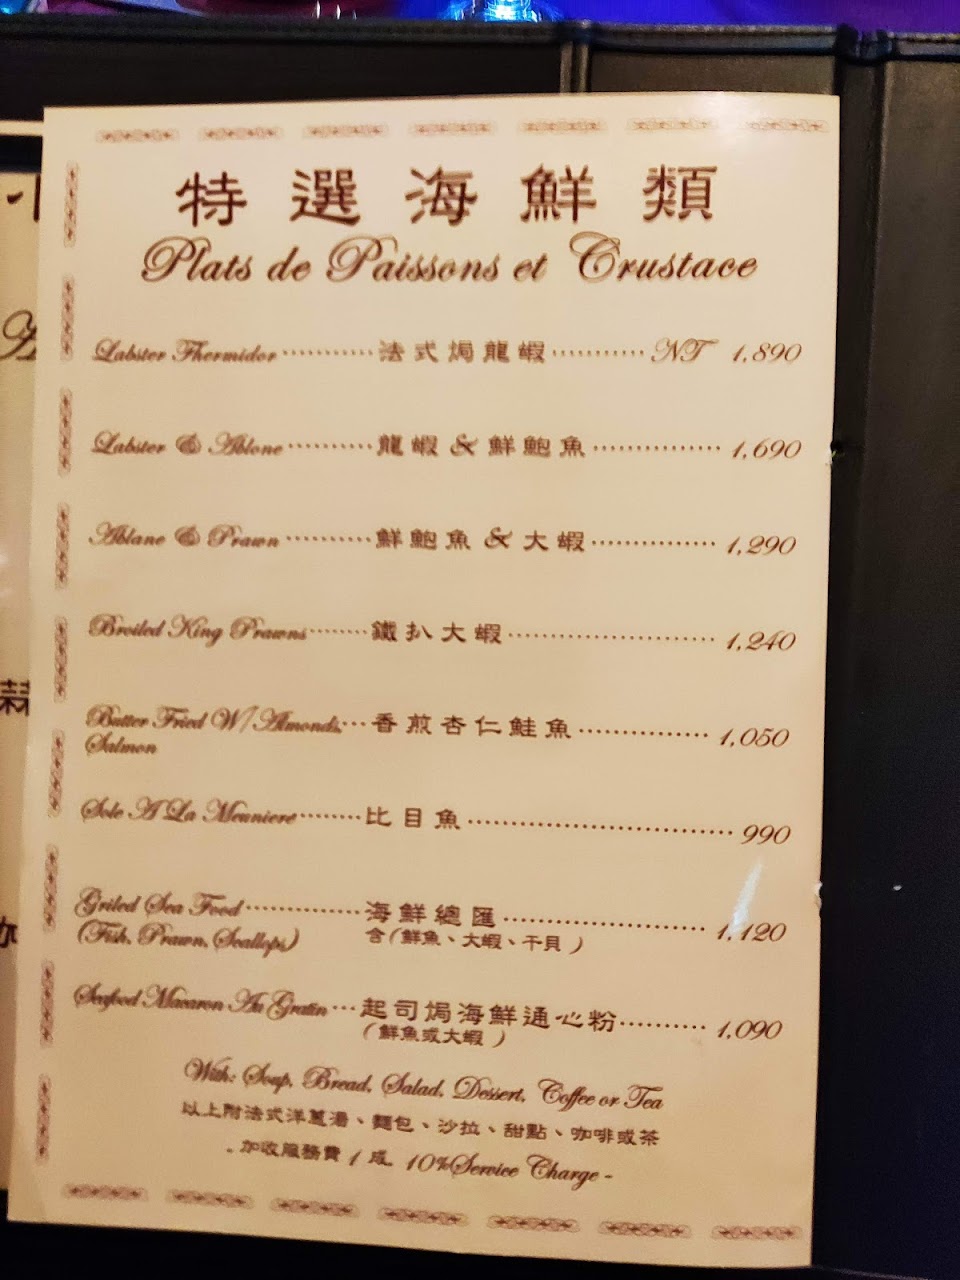 特選海鮮類
Plats de Paissons et Crustace
Labster Fhermidor············法式焗龍蝦············NT 1,890
Labster & Ablone···········龍蝦 & 鮮鮑魚················1,690
Ablane & Prawn···········鮮鮑魚 & 大蝦················1,290
Broiled King Prawns········鐵扒大蝦··························1,240
Butter Fried W/Almonds,···香煎杏仁鮭魚················1,050
Salmon
Sole A La Meuniere········比目魚·································990
Griled Sea Food···············海鮮總匯·························1,120
(Fish, Prawn, Scallops) 含(鮮魚、大蝦、干貝)
Seafood Macaron Au Gratin···起司焗海鮮通心粉···········1,090
(鮮魚或大蝦)
With: Soup, Bread, Salad, Dessert, Coffee or Tea
以上附法式洋蔥湯、麵包、沙拉、甜點、咖啡或茶
- 加收服務費 1 成 10%Service Charge -
蒜